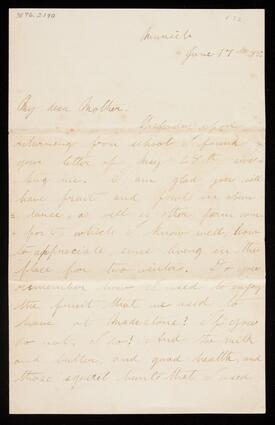 3096.2190
Munich
June 17th
My dear Mother.
Yesterday upon
returning from school I found
your letter of May 28th
me. I am glad you will
have fruit and food in abun
= dance, as well as other form com
fort which I know well how
to appreciate since living in this
place for two winters. Do you
remember how I used to enjoy
the fruit that we used to
have at ? If you
do not, I do! And the milk
and butter, and good health, and
those squirrel hunts that I used